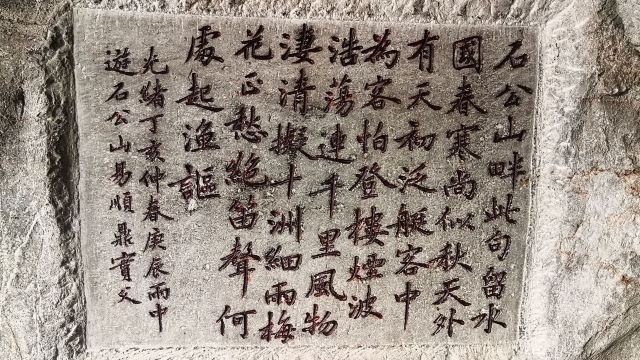 石公山畔此句留水
國春寒尚似秋天外
有天初泛艇客中
為客怕登樓煙波
浩蕩連千里風物
淒清擬十洲細雨梅
花正愁絕笛聲何
處起漁謳
光緒丁亥仲春庚辰雨中
遊石公山易順鼎實父